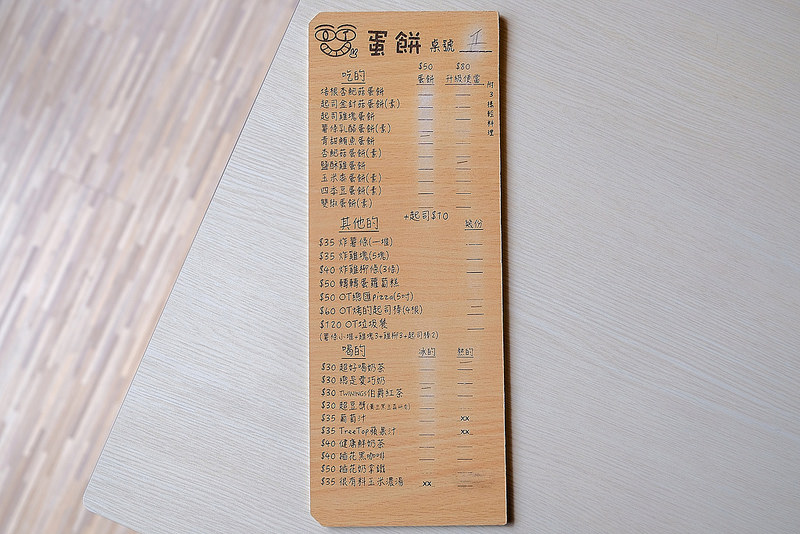 蛋餅 桌號
$50 $80
吃的 蛋餅 升級便當
附3樣輕料理
培根杏鮑菇蛋餅
起司金針菇蛋餅(素)
起司雞塊蛋餅
薯條乳酪蛋餅(素)
青甜鮪魚蛋餅
杏鮑菇蛋餅(素)
鹽酥雞蛋餅
玉米蛋餅(素)
四季豆蛋餅(素)
雙椒蛋餅(素)
+起司$10
其他的 幾份
$35 炸薯條(一堆)
$35 炸雞塊(5塊)
$40 炸雞柳條(3條)
$50 轉轉蛋蘿蔔糕
$50 OT總匯pizza(5吋)
$60 OT烤的起司棒(4根)
$120 OT垃圾餐
(薯條小堆+雞塊3+雞柳3+起司棒2)
喝的 冰的 熱的
$30 超好喝奶茶
$30 總是愛巧奶
$30 TWININGS伯爵紅茶
$30 超豆漿
$35 葡萄汁 xx
$35 TreeTop蘋果汁 xx
$40 健康鮮奶茶
$40 插花黑咖啡
$50 插花奶拿鐵
$35 很有料玉米濃湯 xx